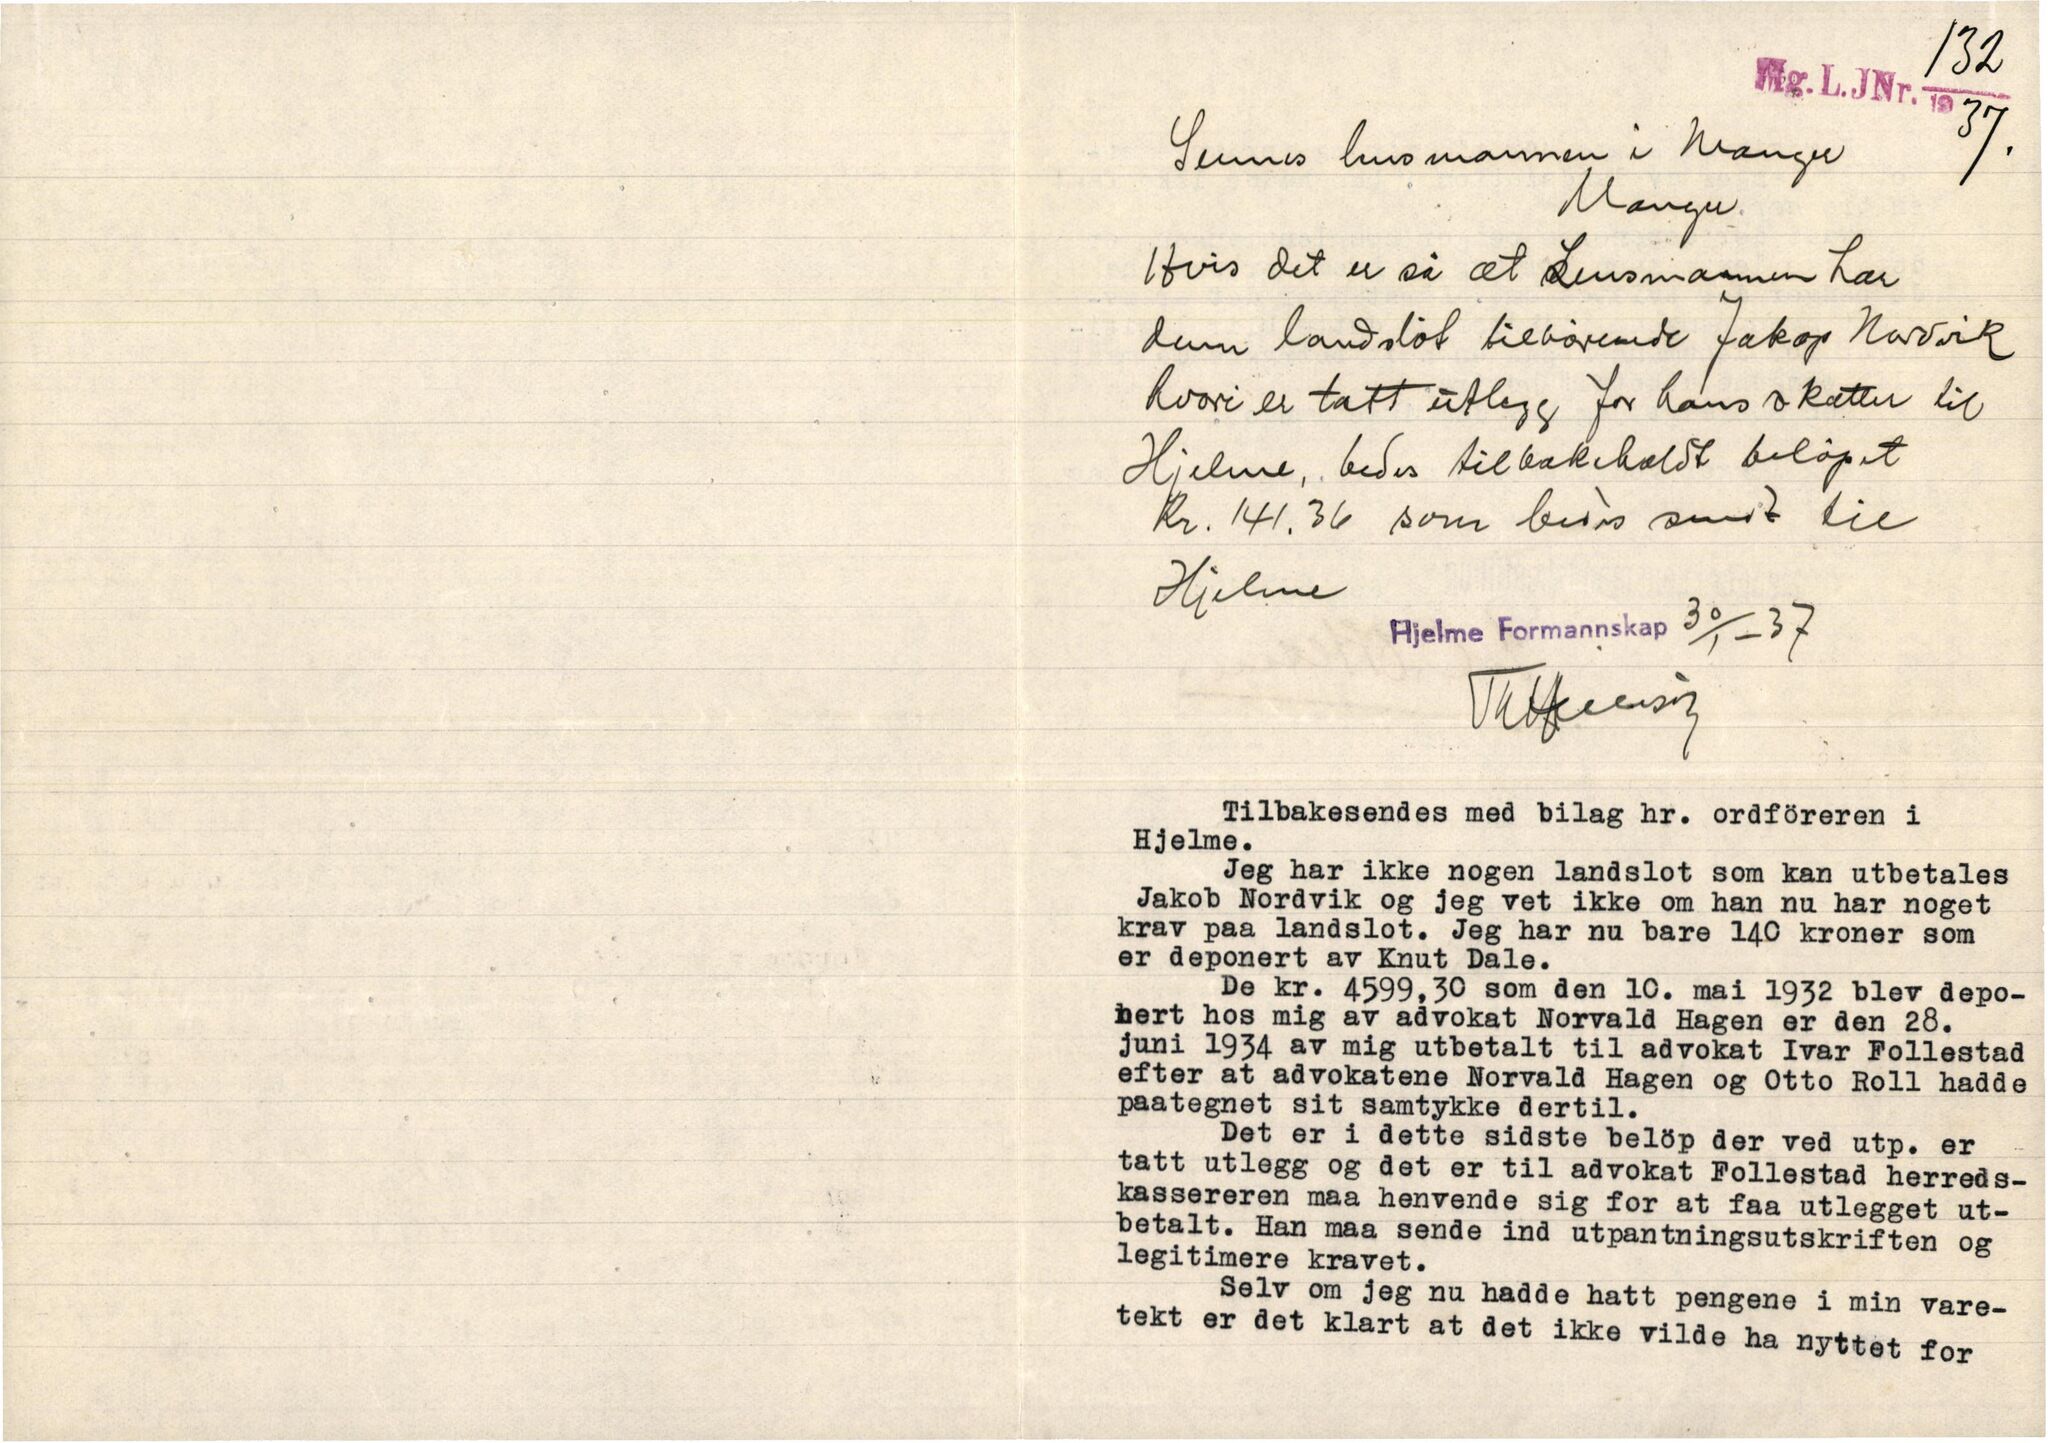 132
Mg. L. JNr. 19 37.
Sennes lensmannen i Manger
Manger.
Hvis det er så at Lensmannen har
denn landslot tilhörende Jakop Nordvik
hvori er tatt utlegg for hans skatter til
Hjelme, bedes tilbakeholdt belöpet
kr. 141.36 som bedes sendt til
Hjelme
Hjelme Formannskap 30/1-37
Tilbakesendes med bilag hr. ordföreren i
Hjelme.
Jeg har ikke nogen landslot som kan utbetales
Jakob Nordvik og jeg vet ikke om han nu har noget
krav paa landslot. Jeg har nu bare 140 kroner som
er deponert av Knut Dale.
De kr. 4599,30 som den 10. mai 1932 blev depo-
nert hos mig av advokat Norvald Hagen er den 28.
juni 1934 av mig utbetalt til advokat Ivar Follestad
efter at advokatene Norvald Hagen og Otto Roll hadde
paategnet sit samtykke dertil.
Det er i dette sidste belöp der ved utp. er
tatt utlegg og det er til advokat Follestad herreds-
kassereren maa henvende sig for at faa utlegget ut-
betalt. Han maa sende ind utpantningsutskriften og
legitimere kravet.
Selv om jeg nu hadde hatt pengene i min vare-
tekt er det klart at det ikke vilde ha nyttet for